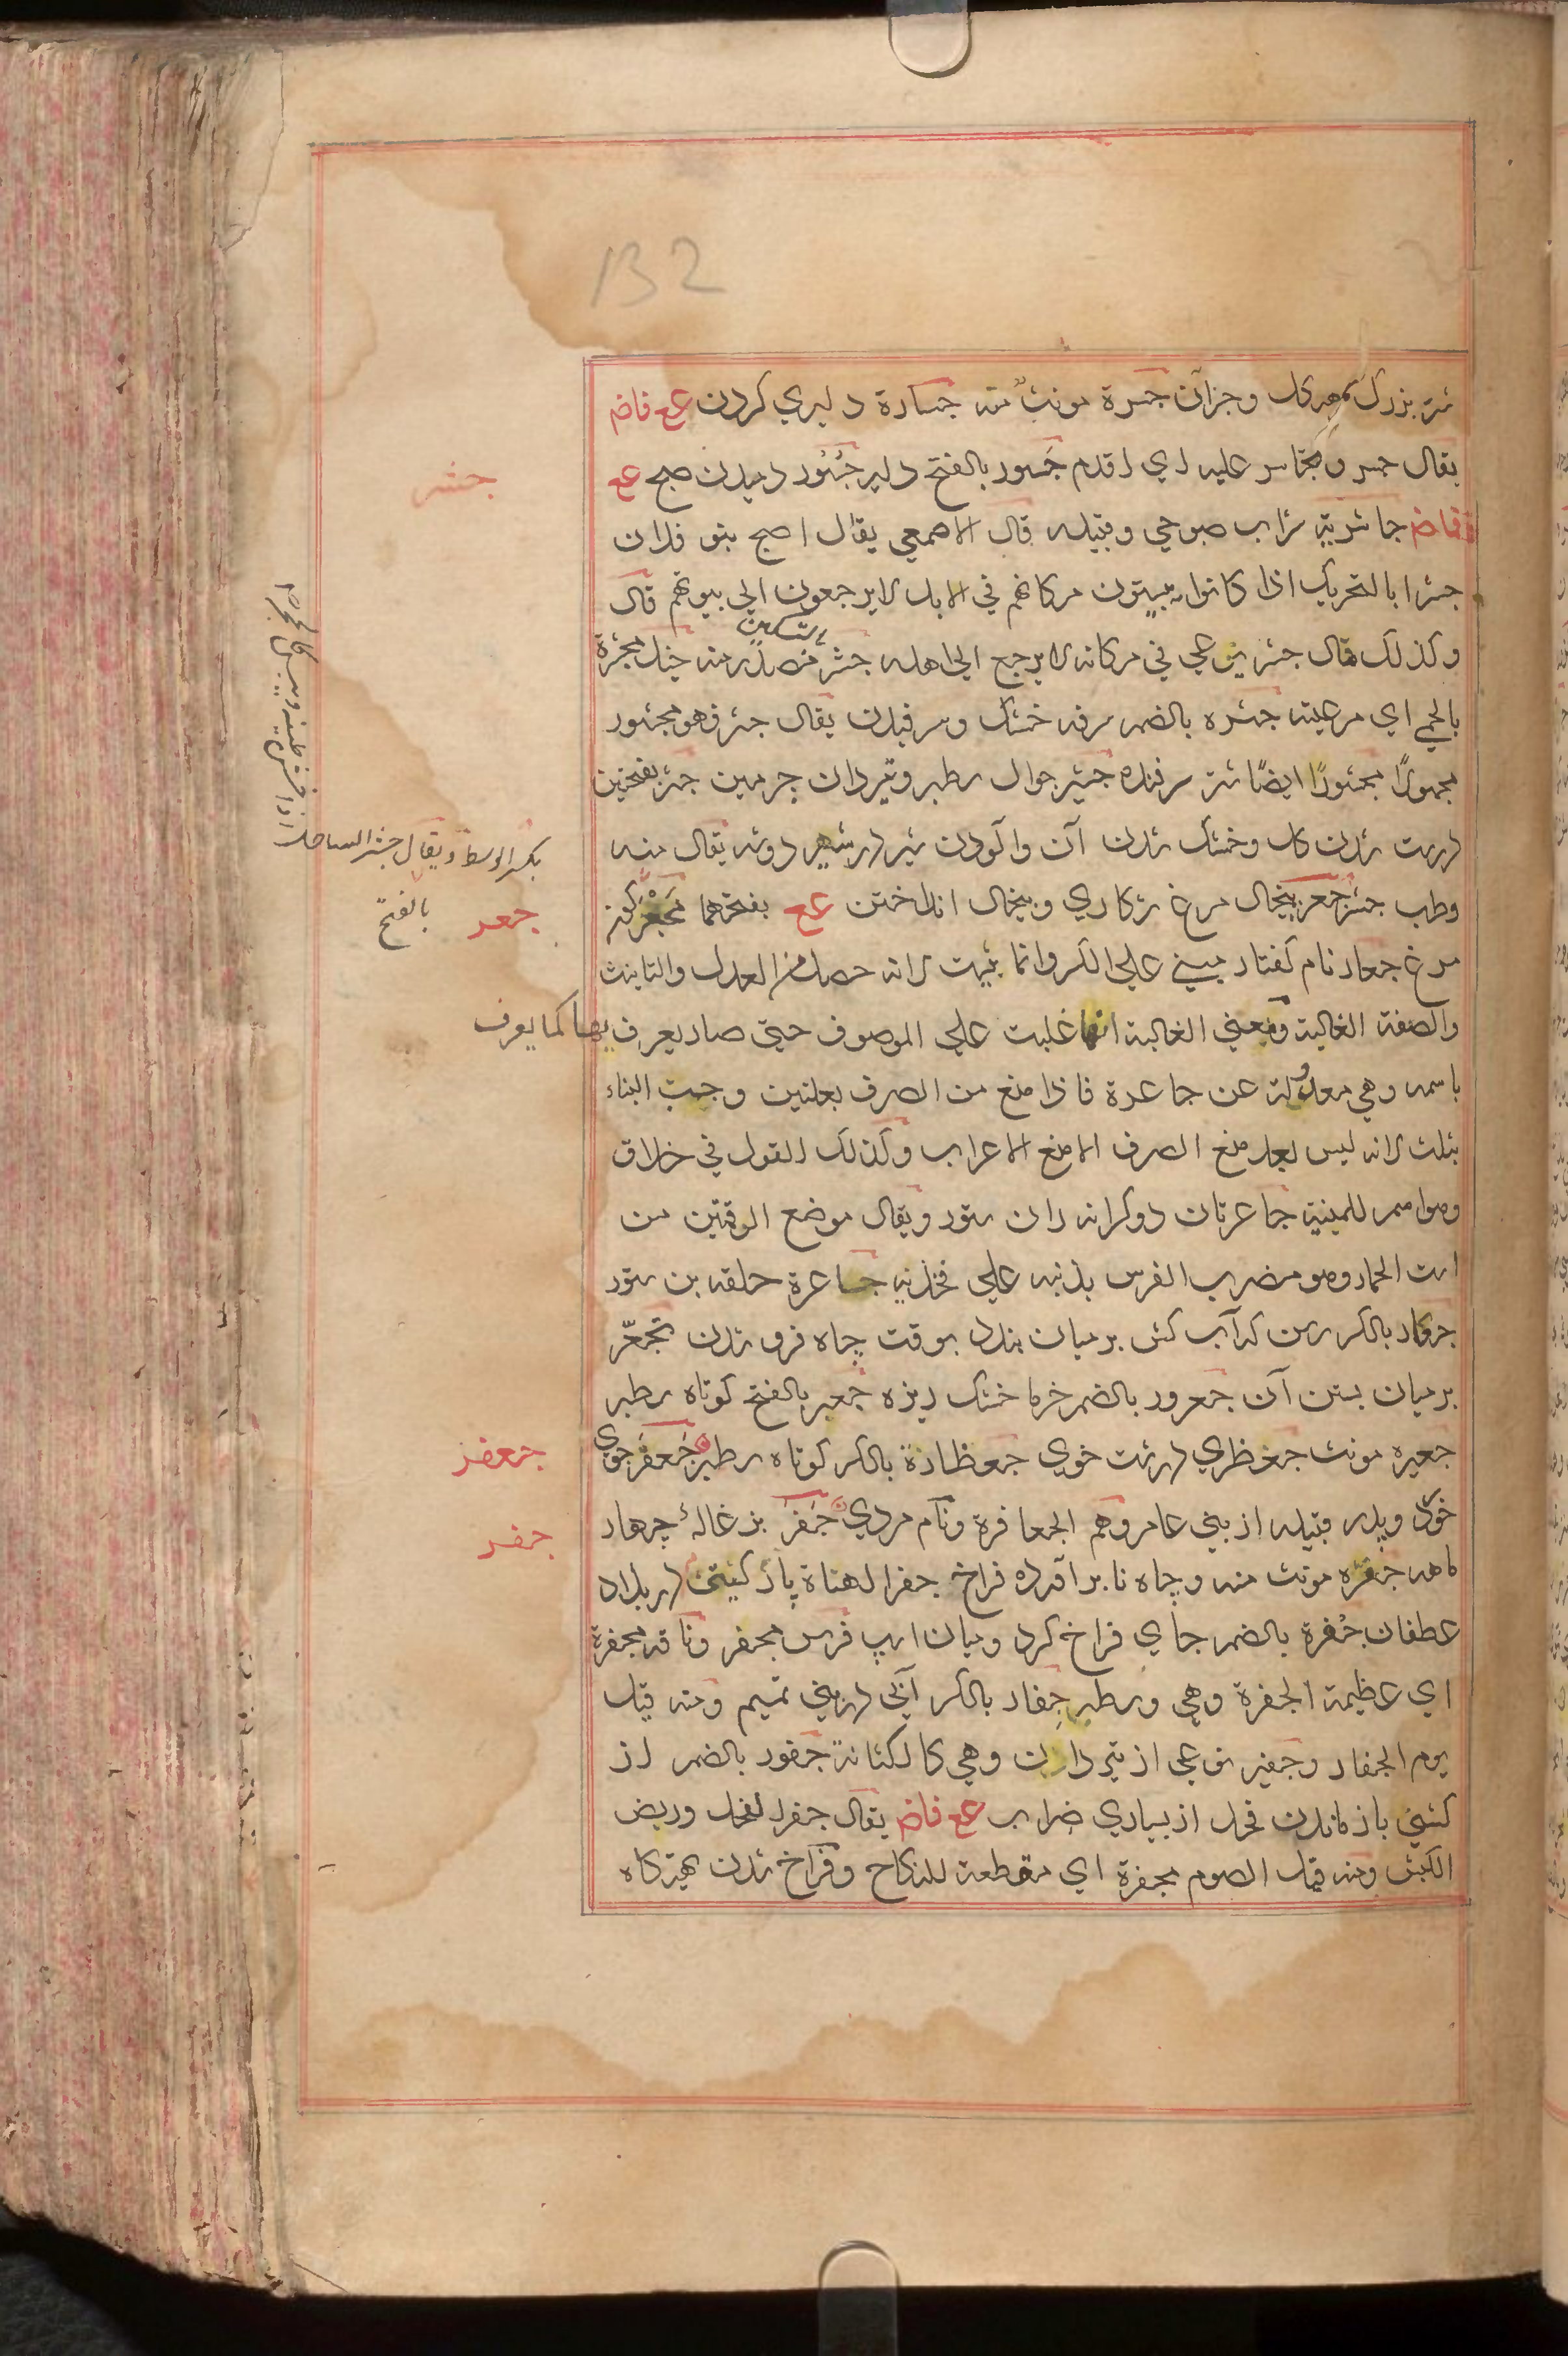 132
شتر بزرك هيكل وجزآن جسرة مونث منه جسارة دليري كردن عع فاض
يقال جسر وتجاسر عليه اي اقدم جسور بالفتح دلير جشور دميدن صبح عع
فاض جاشرية شراب صبوحي وقبيله قال الاصمعي يقال اصبح بنو فلان
جشرا بالتحريك اذا كانوا يبيتون مكانهم في الابل لا يرجعون الي بيوتهم قال
وكذلك مال جشر يرعي في مكانه لا يرجع الي اهله جشر بالتسكين مصدر منه خيل مجشرة
بالحمي اي مرعية جشره بالضم سرفه خشك وسرفيدن يقال جشر فهو مجشور
مجهولا مجشورا ايضا شتر سرفنده جشير جوال سطبر وتيردان چرمين جشر بفتحتين
درست شدن كل وخشك شدن آن وآلودن شير در شير دوشه يقال منه
وطب جشر جعر پيخال مرغ شكاري وپيخال انداختن عع بفتحهما مجعر كون
مرغ جعار نام كفتار مبني علي الكسر وانما بنيت لانه حصل فيها العدل والتانيث
والصفة الغالبة ومعني الغالبة انها غلبت علي الموصوف حتي صار يعرف بها كما يعرف
باسمه وهي معدولة عن جاعرة فاذا منع من الصرف بعلتين وجب البناء
بثلث لانه ليس بعد منع الصرف الا منع الاعراب وكذلك القول في حلاق
وهو اسم للمنية جاعرتان دو كرانه ران ستور ويقال موضع الرقمتين من
است الحمار وهو مضرب الفرس بذنبه علي فخذيه جاعرة حلقه بن ستور
جعار بالكسر رسن كه آب كش بر ميان بندد بوقت چاه فرو شدن تجعّر
بر ميان بستن آن جعرور بالضم خرما خشك ريزه جعبر بالفتح كوتاه سطبر
جعبره مونث جعظري درشت خوي جعظارة بالكسر كوتاه سطبر جعفر جوي
خرد وپدر قبيله از بني عامر وهم الجعافرة ونام مردي جفر بزغالۀ چهار
ماهه جفره مونث منه وچاه نابرآورده فراخ جفر الهباءة در بلاد
غطفان جفرة بالضم جاي فراخ كرد وميان اسپ فرس مجفر وناقه مجفرة
اي عظيمة الجفرة وهي وسطه جفار بالكسر آبي در بني تميم ومنه قيل
يوم الجفار وجفير نوعي از تيردان وهي كالكنانة جفور بالضم از
كشني باز ماندن فحل از بسياري ضراب عع فاض يقال جفر الفحل وربض
الكبش ومنه قيل الصوم مجفرة اي مقطعة للنكاح وفراخ شدن تهيگاه
جشر
بكسر الوسط ويقال جشر الساحل
بالفتح
جعر
جعفر
جفر